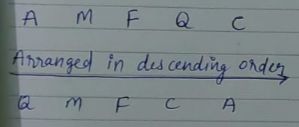 A M F Q C
Arranged in descending order
Q M F C A